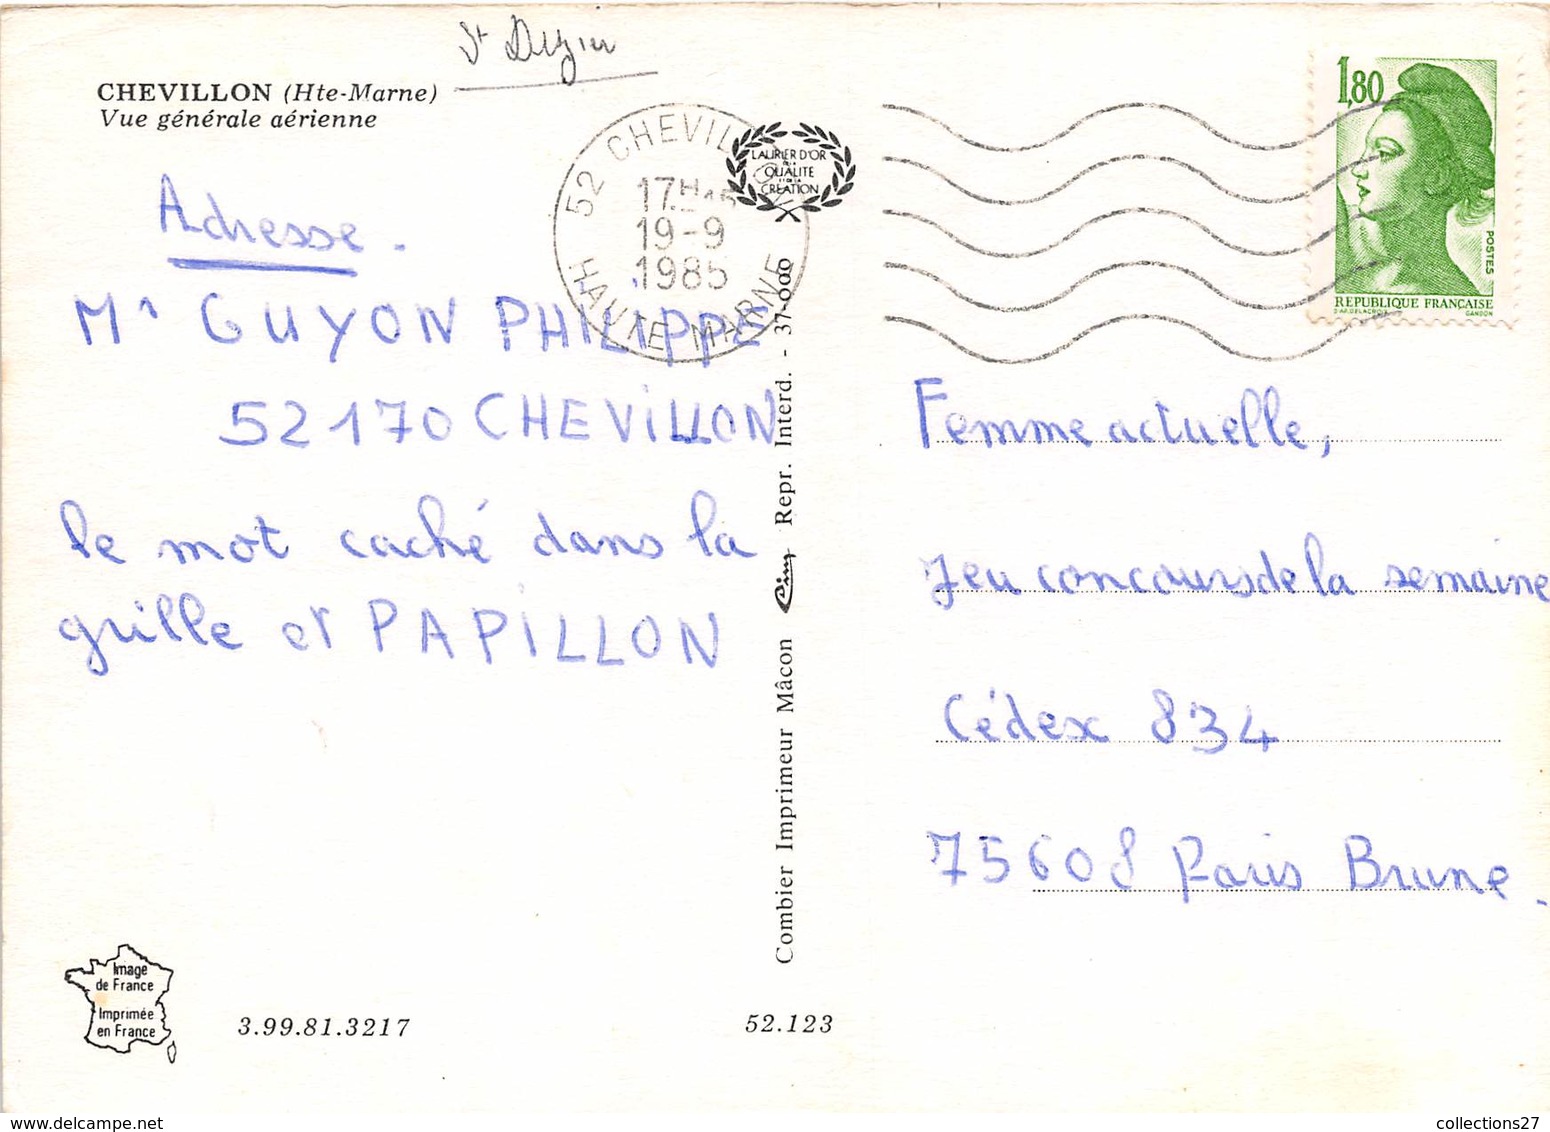 St Dizier
CHEVILLON (Hte-Marne)
Vue générale aérienne
52 CHEVILLON
17H15
19-9
1985
HAUTE MARNE
LAURIER D'OR
DE LA
QUALITE
ET DE LA
CREATION
1,80
POSTES
REPUBLIQUE FRANÇAISE
D'AP. DELACROIX GANDON
Adresse.
Mr GUYON PHILIPPE
52170 CHEVILLON
le mot caché dans la
grille et PAPILLON
Combier Imprimeur Mâcon Cim Repr. Interd. - 37-000
Femme actuelle,
Jeu concours de la semaine
Cédex 834
75608 Paris Brune.
Image
de France
Imprimée
en France
3.99.81.3217
52.123
collections27